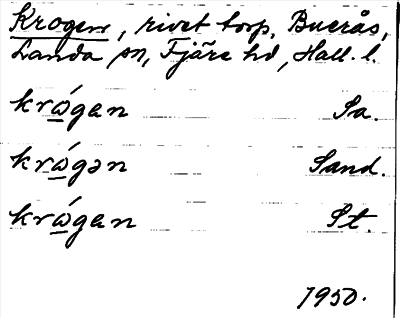 Krogen, rivet torp, Buerås,
Landa sn, Fjäre hd, Hall. l.
krώ̲gen Sa.
krώ̲gən Sand.
krώ̲gen St.
1950.